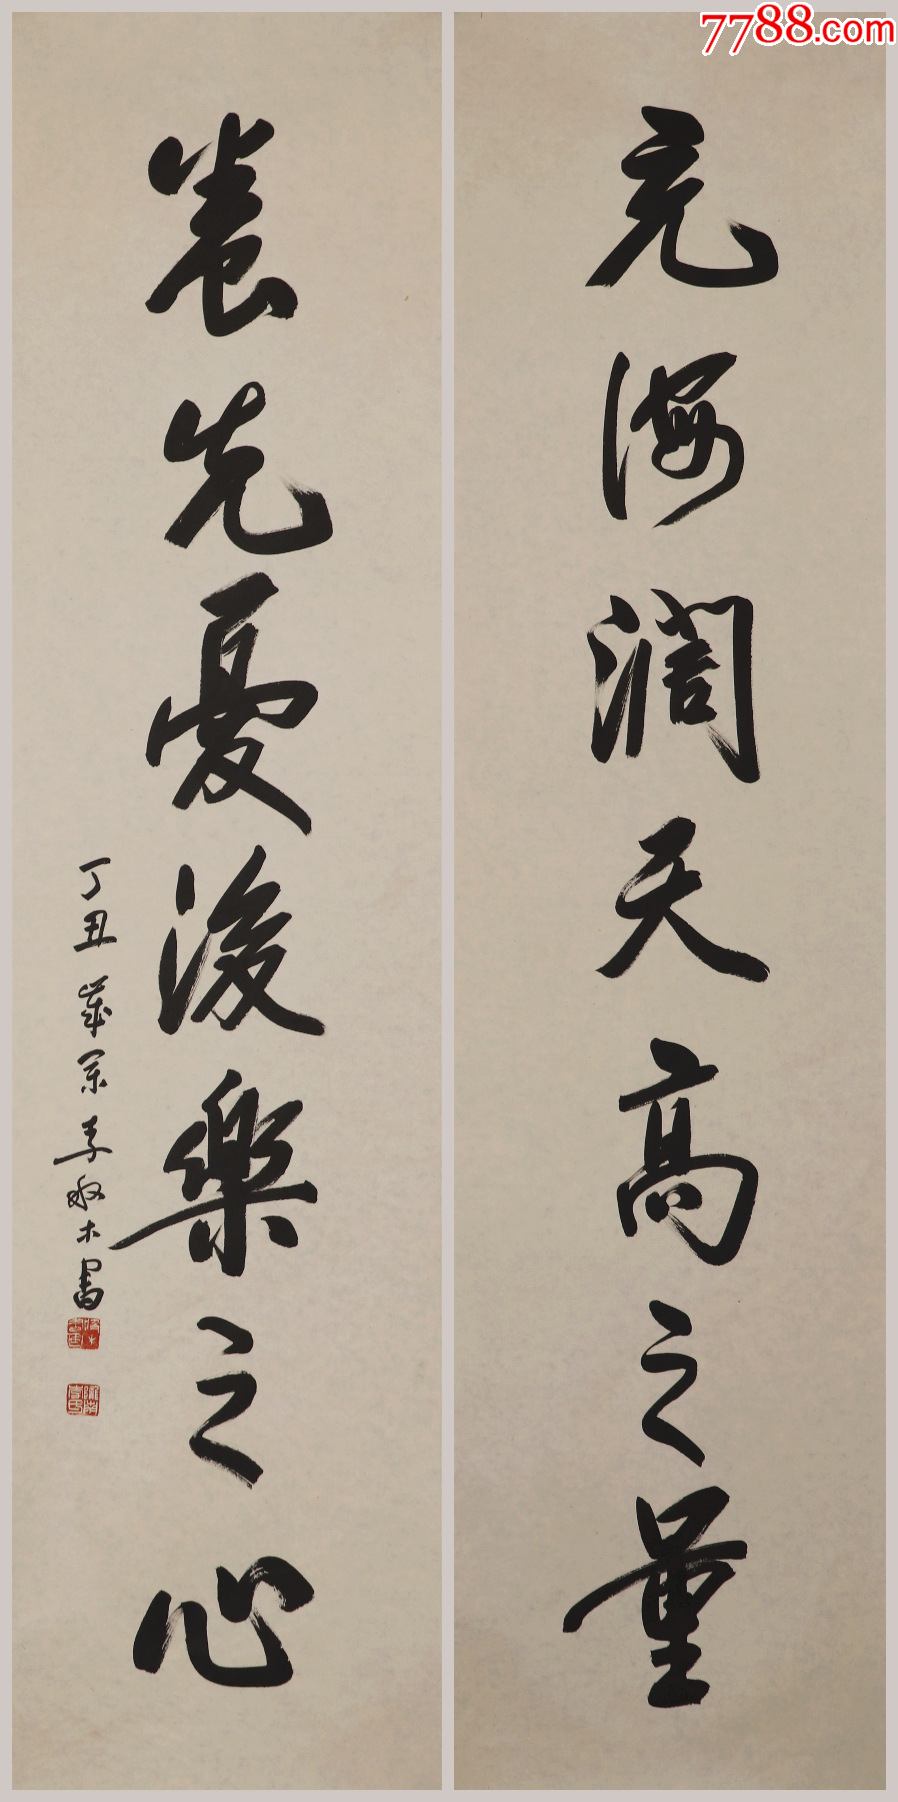 7788.com
充海濶天高之量
養先憂後樂之心
丁丑歲李敬木書